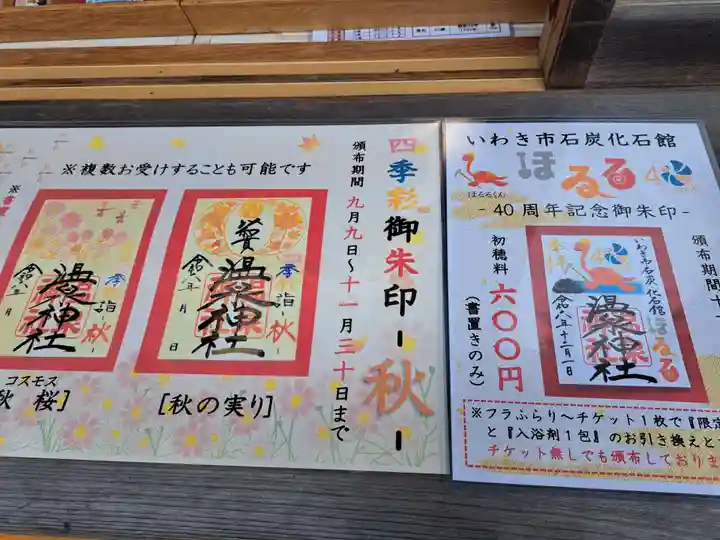 四季彩御朱印ー秋ー
頒布期間 九月九日〜十一月三十日まで
※複数お受けすることも可能です
季詣
秋
温泉神社
月 日
季詣
秋
温泉神社
月
コスモス
秋 桜]
[秋の実り]
いわき市石炭化石館
ほるる
40
ほるるくん
- 40周年記念御朱印-
初穂料 六〇〇円
(書置きのみ)
頒布期間
いわき市石炭化石館
ほるる
温泉神社
※フラぶらり〜チケット1枚で『限定
と『入浴剤1包』のお引き換えと
チケット無しでも頒布しておりま